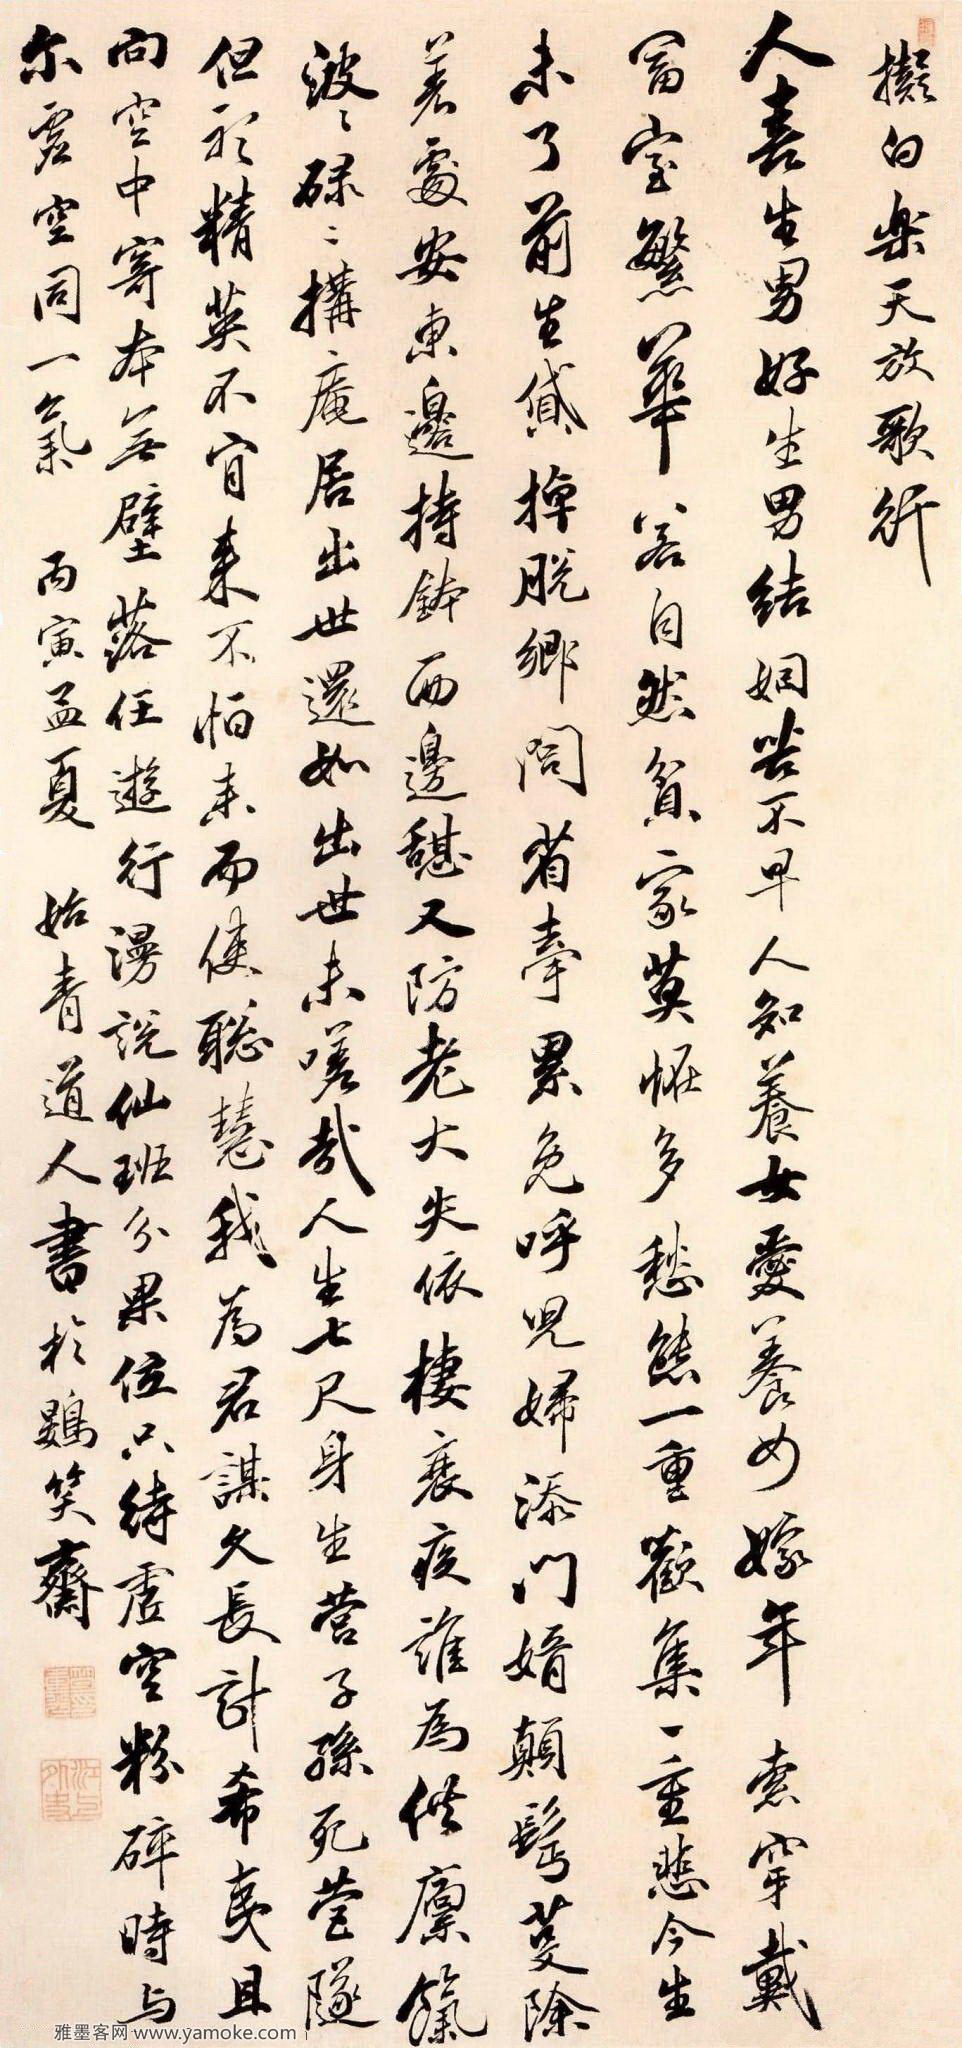 擬白樂天放歌行
人喜生男好生男結姻苦不早人知養女愛養女嫁年索穿戴
富室繁華若自然貧家莫惟多愁態一重歡集一重悲今生
未了前生貸掉脫鄉閭省牽累免呼兒婦添門婿顛髩蔓除
羌處安東邊持鉢西邊甚又防老大失依棲衰疾誰為供廩餼
波波碌碌搆庵居出世還如出世未嗟哉人生七尺身生營子孫死營隧
但祈精英不宵来不怕来而使聪慧我為君謀久長計希夷且
向空中寄本無壁落任遊行漫說仙班分果位只待虛空粉碎時与
尔虛空同一氣 丙寅孟夏 始青道人書於鷃笑齋
雅墨客网 www.yamoke.com